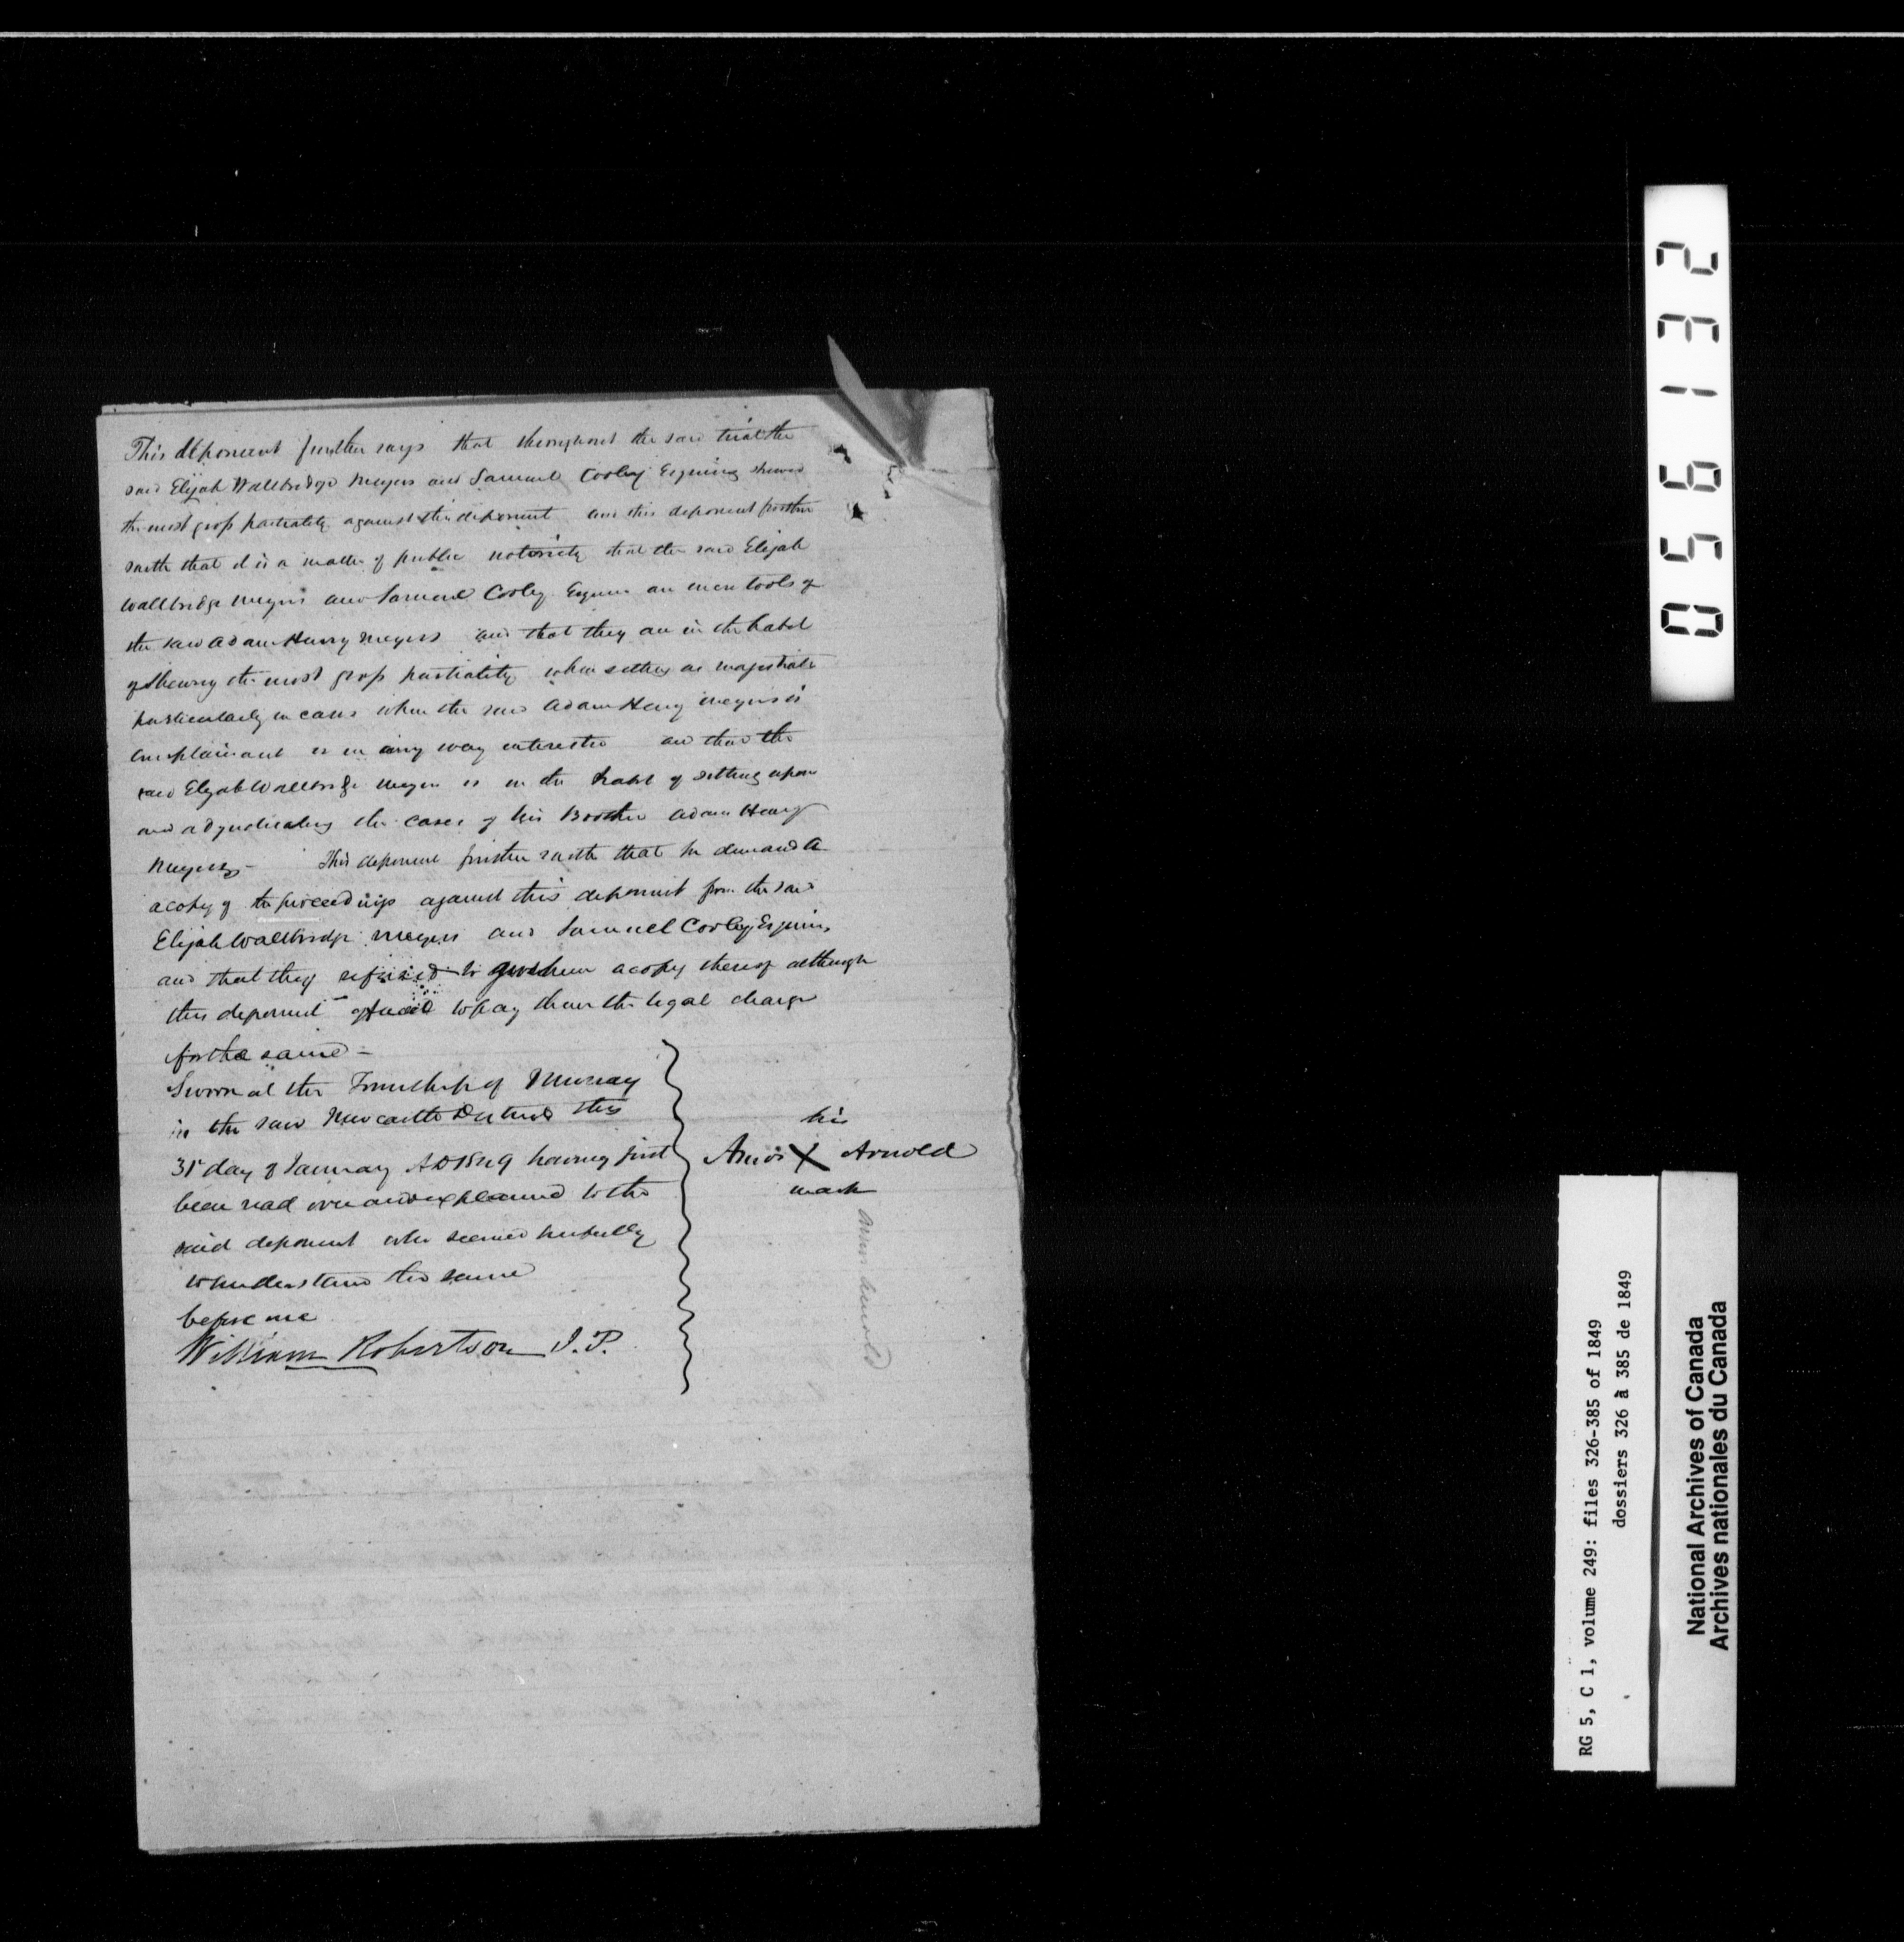 This deponent further says that throughout the said trial the
said Elijah Wallbridge Meyers and Samuel Cooley Esquires shewed
the most gross partiality against this deponent and this deponent further
saith that it is a matter of public notoriety that the said Elijah
Wallbridge Meyers and Samuel Cooley Esquires are mere tools of
the said Adam Henry Meyers and that they are in the habit
of shewing the most gross partiality when sitting as magistrates
particularly in cases when the said Adam Henry Meyers is
complainant or in any way interested and that the
said Elijah Wallbridge Meyers is in the habit of sitting upon
and adjudicating the cases of his Brother Adam Henry
Meyers - This deponent further saith that he demanded
a copy of the proceedings against this deponent from the said
Elijah Wallbridge Meyers and Samuel Cooley Esquires
and that they refused to give him a copy thereof although
this deponent offered to pay them the legal charge
for the same -
Sworn at the Township of Murray
in the said Newcastle District this
31st day of January AD 1849 having first
been read over and explained to the
said deponent who seemed perfectly
to understand the same
before me
William Robertson J.P.
his
Amos X Arnold
mark
Arnold
056132
RG 5, C 1, volume 249: files 326-385 of 1849
dossiers 326 à 385 de 1849
National Archives of Canada
Archives nationales du Canada